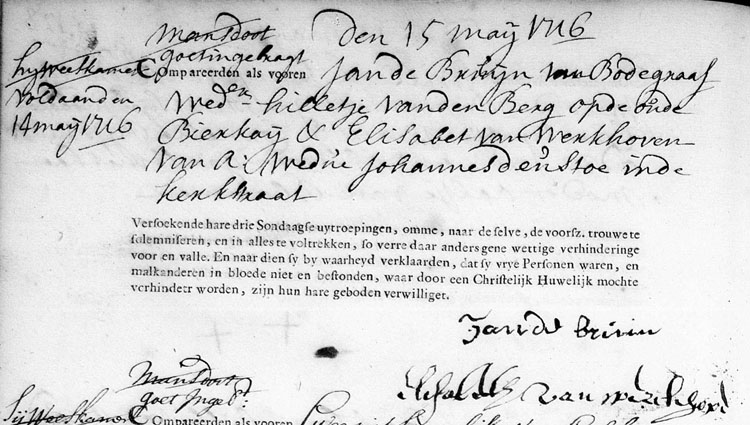 den 15 maÿ 1716
mansdoot
goet ingebragt
hy weeskamer
voldaan den
14 maÿ 1716
Compareerden als vooren Jan de Bruÿn van Bodegraaf
wed.er hilletje vanden Berg op de oude
Bierkaÿ & Elisabet van Werkhoven
van A: wedue Johannes den Stoe inde
kerkstraat
Versoekende hare drie Sondaagse uytroepingen, omme, naar de selve, de voorsz. trouwe te
solemniseren, en in alles te voltrekken, so verre daar anders gene wettige verhinderinge
voor en valle. En naar dien sy by waarheyd verklaarden, dat sy vrye Personen waren, en
malkanderen in bloede niet en bestonden, waar door een Christelijk Huwelijk mochte
verhindert worden, zijn hun hare geboden verwilliget.
Jan de bruin
van werckhoven
mansdoot
goet Inge.b:
Sij Weeskamer
Compareerden als vooren